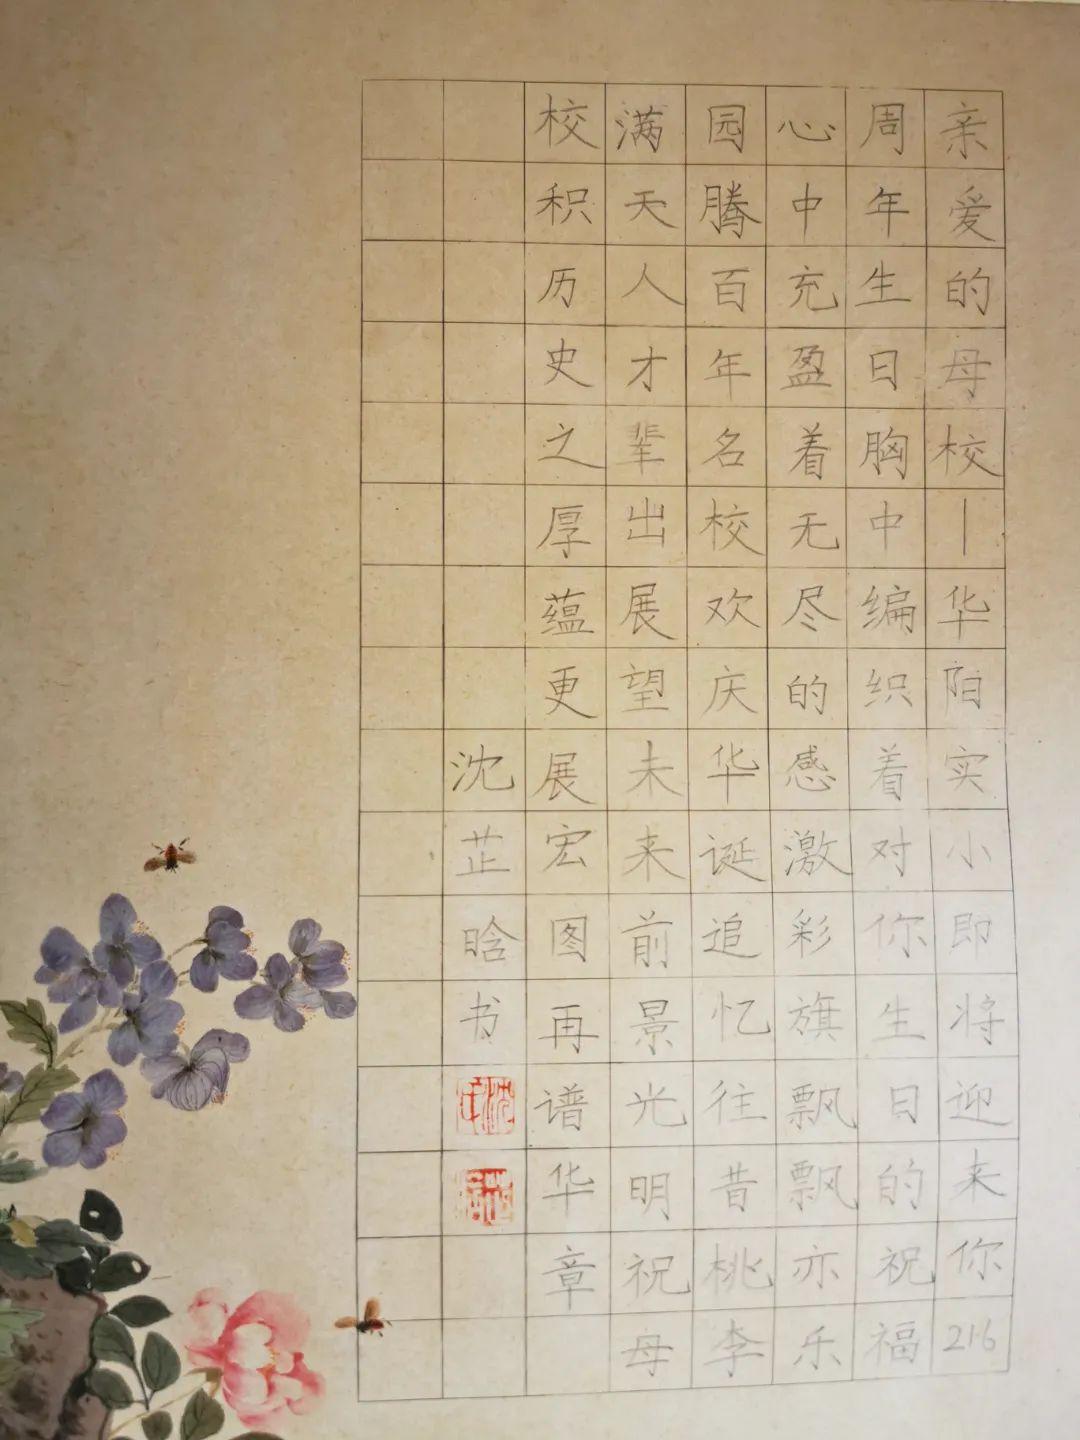 亲爱的母校—华阳实小即将迎来你216
周年生日胸中编织着对你生日的祝福
心中充盈着无尽的感激彩旗飘飘亦乐
园腾百年名校欢庆华诞追忆往昔桃李
满天人才辈出展望未来前景光明祝母
校积历史之厚蕴更展宏图再谱华章
沈芷晗书